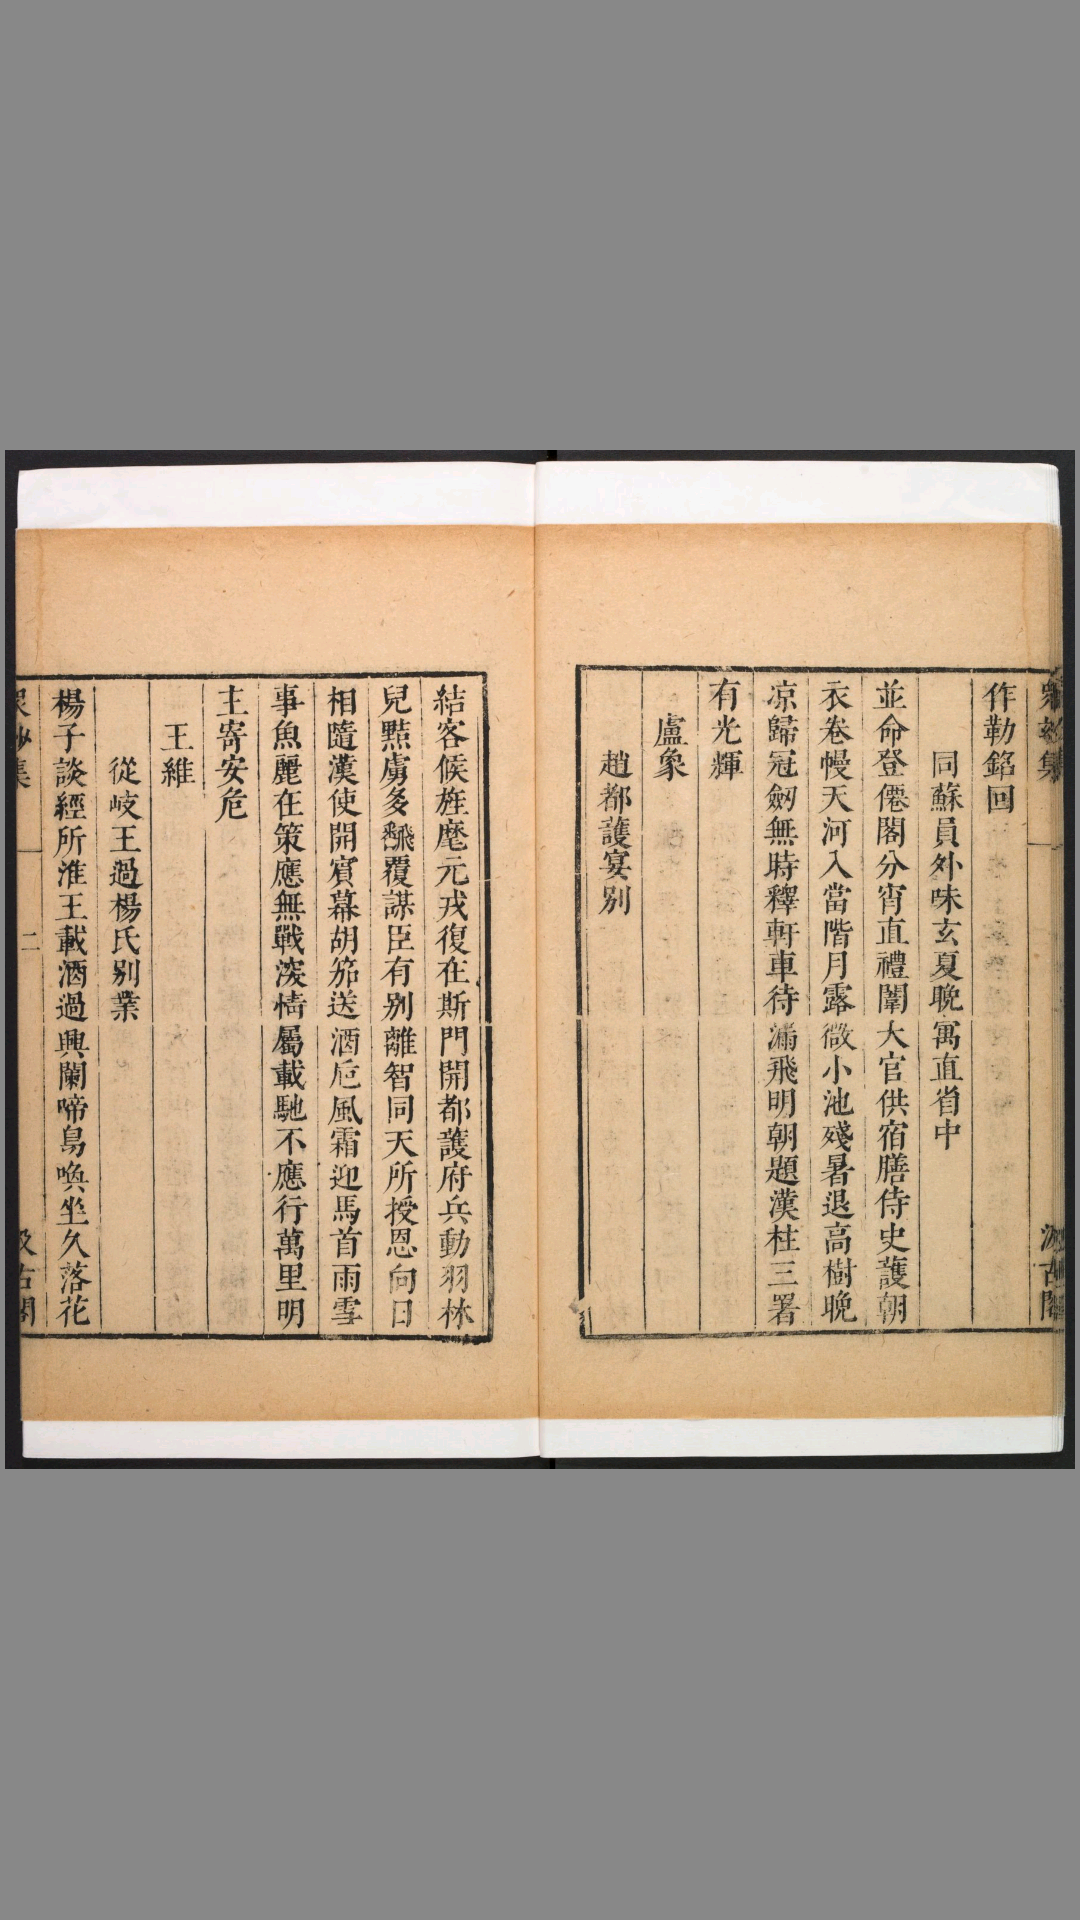 衆妙集
汲古閣
作勒銘回
同蘇員外味玄夏晚寓直省中
並命登僊閣分宵直禮闈大官供宿膳侍史護朝
衣卷幔天河入當階月露微小池殘暑退高樹晚
凉歸冠劒無時釋軒車待漏飛明朝題漢柱三署
有光輝
盧象
趙都護宴別
結客候旌麾元戎復在斯門開都護府兵動羽林
兒黠虜多飜覆謀臣有别離智同天所授恩向日
相隨漢使開賓幕胡笳送酒卮風霜迎馬首雨雪
事魚麗在策應無戰深情屬載馳不應行萬里明
主寄安危
王維
從岐王過楊氏別業
楊子談經所淮王載酒過興闌啼鳥喚坐久落花
衆妙集
二
汲古閣